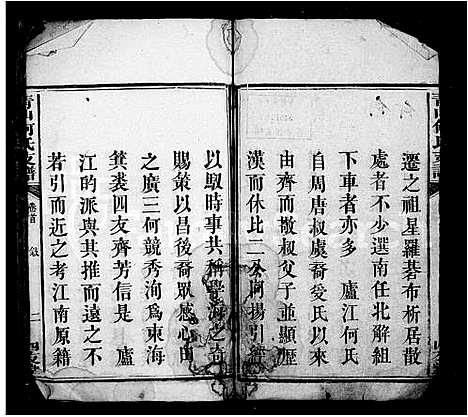 遷之祖星羅碁布析居散
處者不少選南任北解組
下車者亦多　廬江何氏
自周唐叔虞裔受氏以來
由齊而敬叔父子並顯歷
漢而休比二公開揚引經
以馭時事共稱學海之名
賜策以昌後裔眾感心由
之廣三何競秀洵為東海
箕裘四友齊芳信是　廬
江的派與其推而遠之不
若引而近之考江南原籍
青山何氏支譜
卷首
二